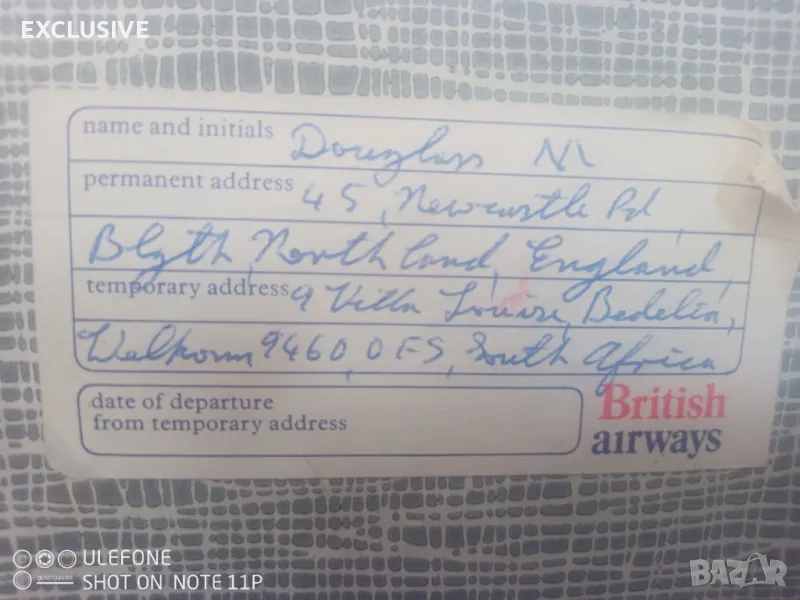 EXCLUSIVE
name and initials Douglass N
permanent address 45, Newcastle Rd,
Blyth, Northland, England,
temporary address 9 Villa Louise, Bedelia,
Welkom 9460, OFS, South Africa.
date of departure
from temporary address
British
airways
ULEFONE
SHOT ON NOTE 11P
BAZAR